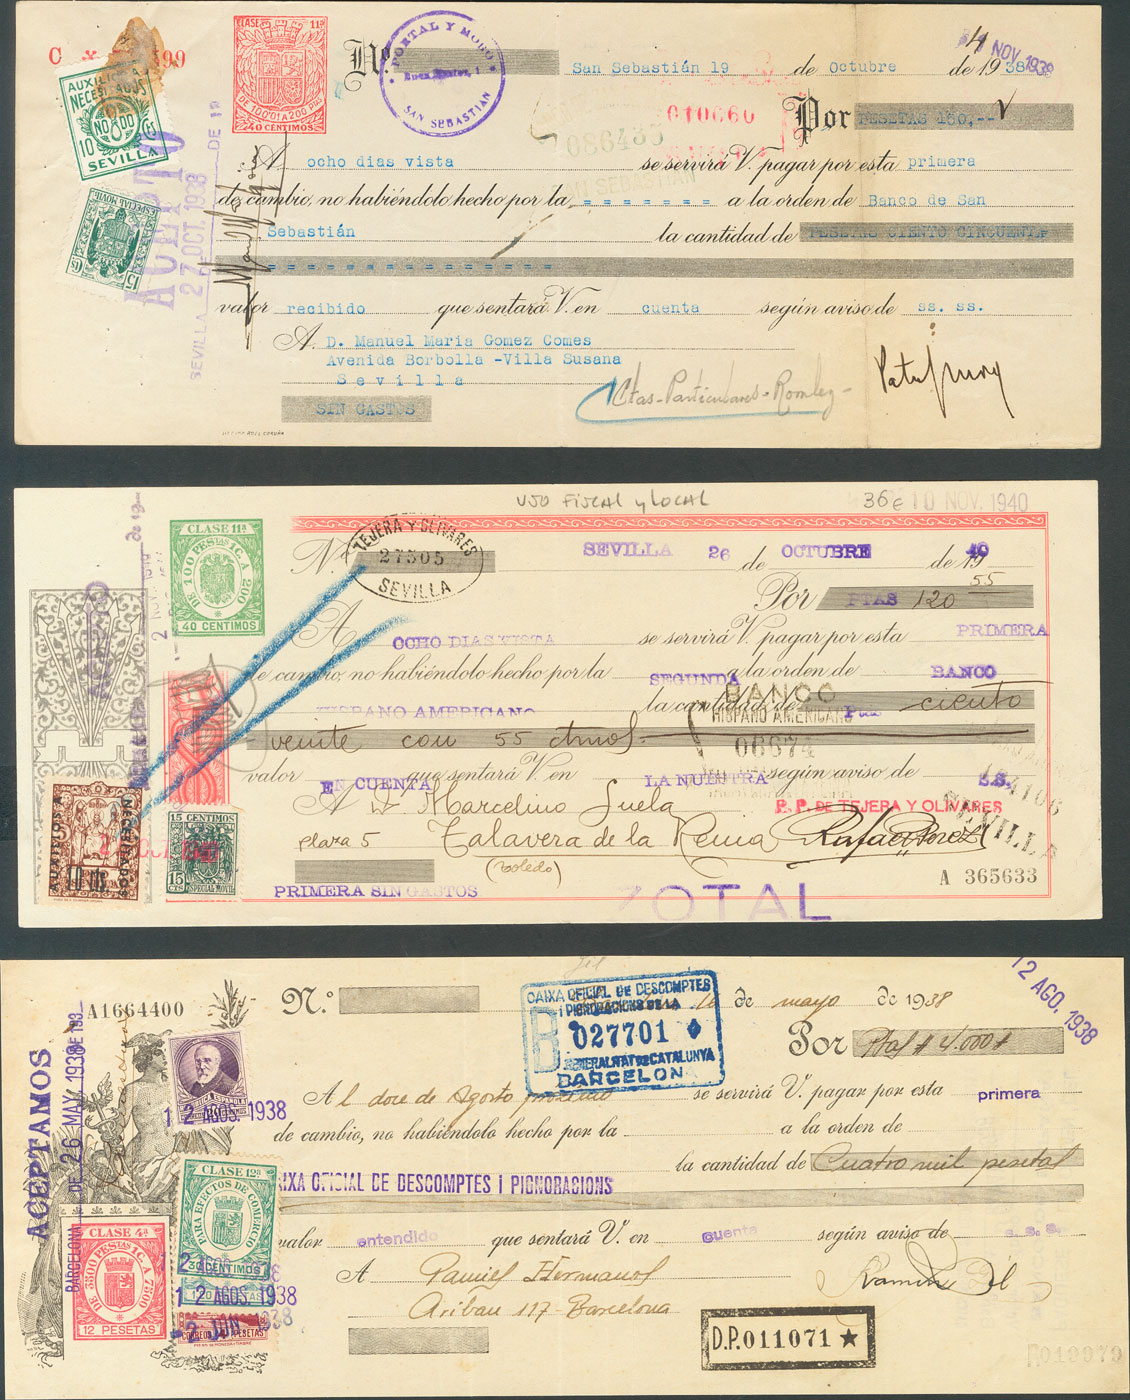 CLASE 11ª
DE 100'01 A 200 Ptas
40 CENTIMOS
AUXILIO A NECESITADOS
10 Cs
SEVILLA
ESPECIAL MOVIL
15 Cs
ACEPTO
SEVILLA 27 OCT. 1938 DE 19
PORTAL Y MORO
SAN SEBASTIAN
Nº
4 NOV. 1938
San Sebastián 19 de Octubre de 1938
010660
086435
Por PESETAS 150,--
A ocho dias vista se servirá V. pagar por esta primera
de cambio, no habiéndolo hecho por la - - - - - - - a la orden de Banco de San
Sebastián la cantidad de PESETAS CIENTO CINCUENTA
= = = = = = = = = = = = = = =
valor recibido que sentará V. en cuenta según aviso de ss. ss.
A D. Manuel Maria Gomez Comes
Avenida Borbolla -Villa Susana
Sevilla
Ctas - Particulares -
SIN GASTOS
USO FISCAL y LOCAL
36 €
10 NOV. 1940
CLASE 11ª
DE 100 PESTAS 1 C. A 200
40 CENTIMOS
N.
TEJERA Y OLIVARES
27305
SEVILLA
SEVILLA 26 de OCTUBRE de 1940
Por PTAS 120 55
A OCHO DIAS VISTA se servirá V. pagar por esta PRIMERA
de cambio, no habiéndolo hecho por la SEGUNDA a la orden de BANCO
HISPANO AMERICANO la cantidad de Ptas ciento
BANCO
HISPANO AMERICANO
06674
veinte con 55 ctmos
valor EN CUENTA que sentará V. en LA NUESTRA según aviso de S.S.
A D. Marcelino Suela
P. P. DE TEJERA Y OLIVARES
SEVILLA
plaza 5 Talavera de la Reina
Rafael Perez
(Toledo)
AUXILIOS A NECESITADOS
10 cts.
15 CENTIMOS
15 CTS
ESPECIAL MOVIL
PRIMERA SIN GASTOS
ZOTAL
A 365633
A1664400
N.º
CAIXA OFICIAL DE DESCOMPTES
I PIGNORACIONS DE LA
B 027701
GENERALITAT DE CATALUNYA
BARCELONA
16 de mayo de 1938
12 AGO. 1938
Por Ptas # 4.000 #
ACEPTAMOS
BARCELONA DE 26 MAY 1938 DE 193
Al doce de Agosto proximo se servirá V. pagar por esta primera
12 AGOS. 1938
de cambio, no habiéndolo hecho por la a la orden de
la cantidad de Cuatro mil pesetas
CAIXA OFICIAL DE DESCOMPTES I PIGNORACIONS
CLASE 12ª
PARA EFECTOS DE COMERCIO
30 CENTIMOS
valor entendido que sentará V. en cuenta según aviso de s.s.s.
CLASE 4ª
DE 3500 PESTAS 1 C. A 7500
12 PESETAS
2 AGOS. 1938
12 AGOS. 1938
2 JUN 1938
A Daniel Hermanos
Aribau 117 - Barcelona
Ramón Gil
D.P.011071 ★